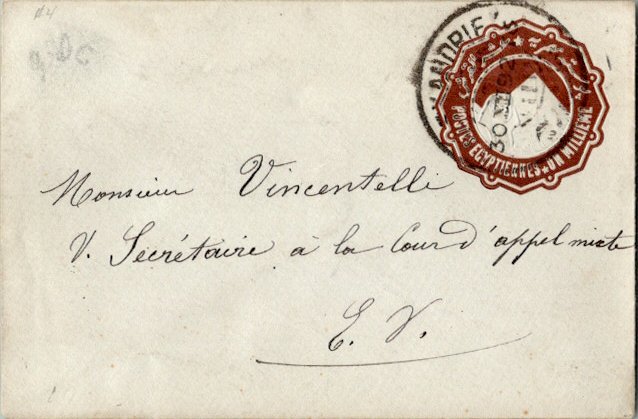 9.00
POSTES EGYPTIENNES. UN MILLIÈME
Monsieur Vincentelli
V. Secrétaire à la Cour d'appel mixte
E. V.